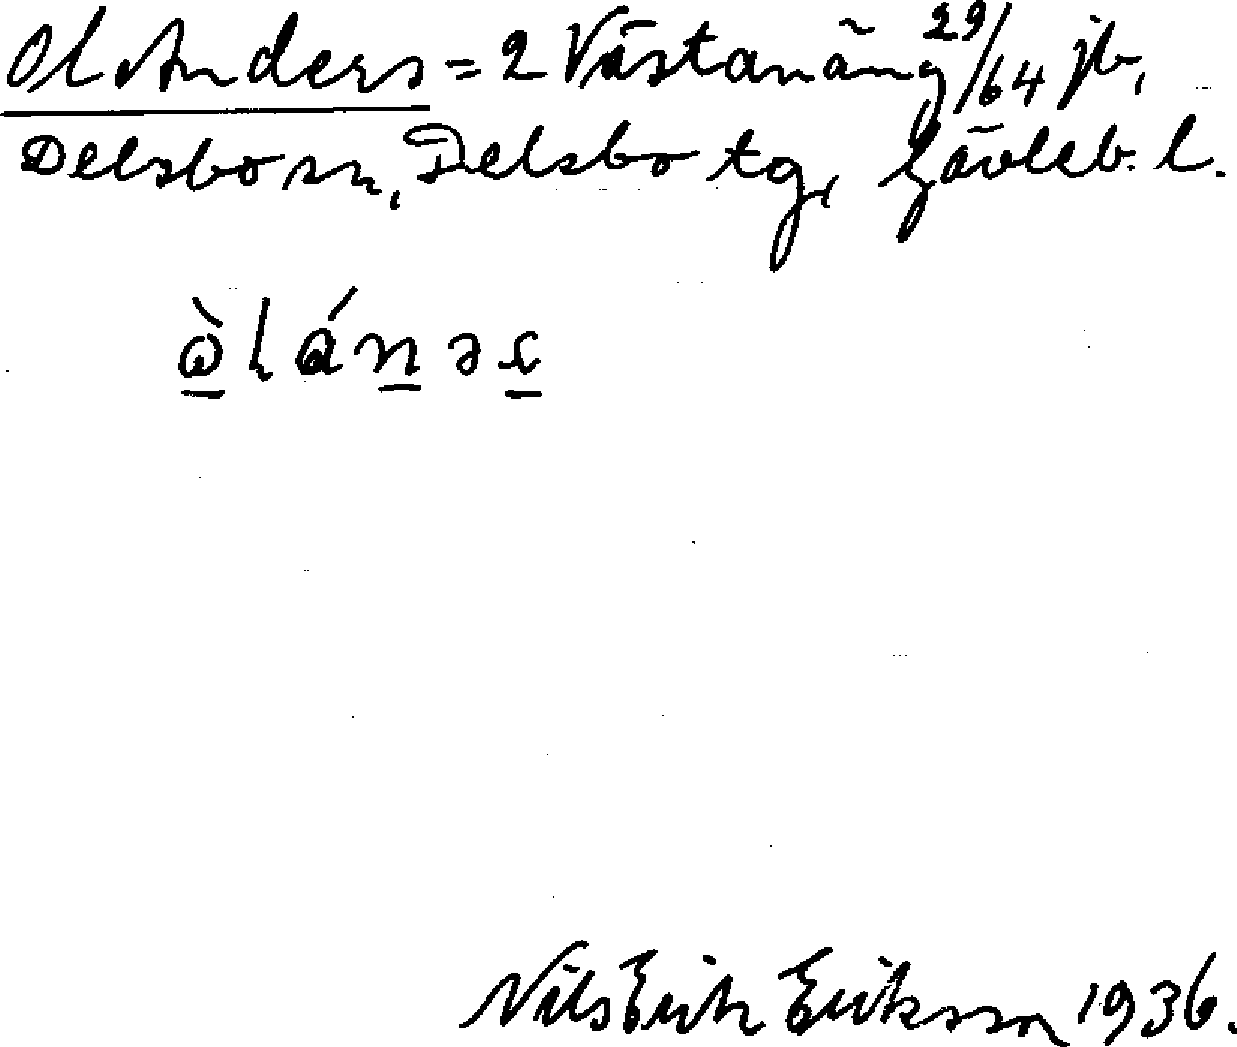 Ol Anders = 2 Västanäng 29/64 jb,
Delsbo sn, Delsbo tg, Gävleb. l.
Nils Erik Eriksson 1936.